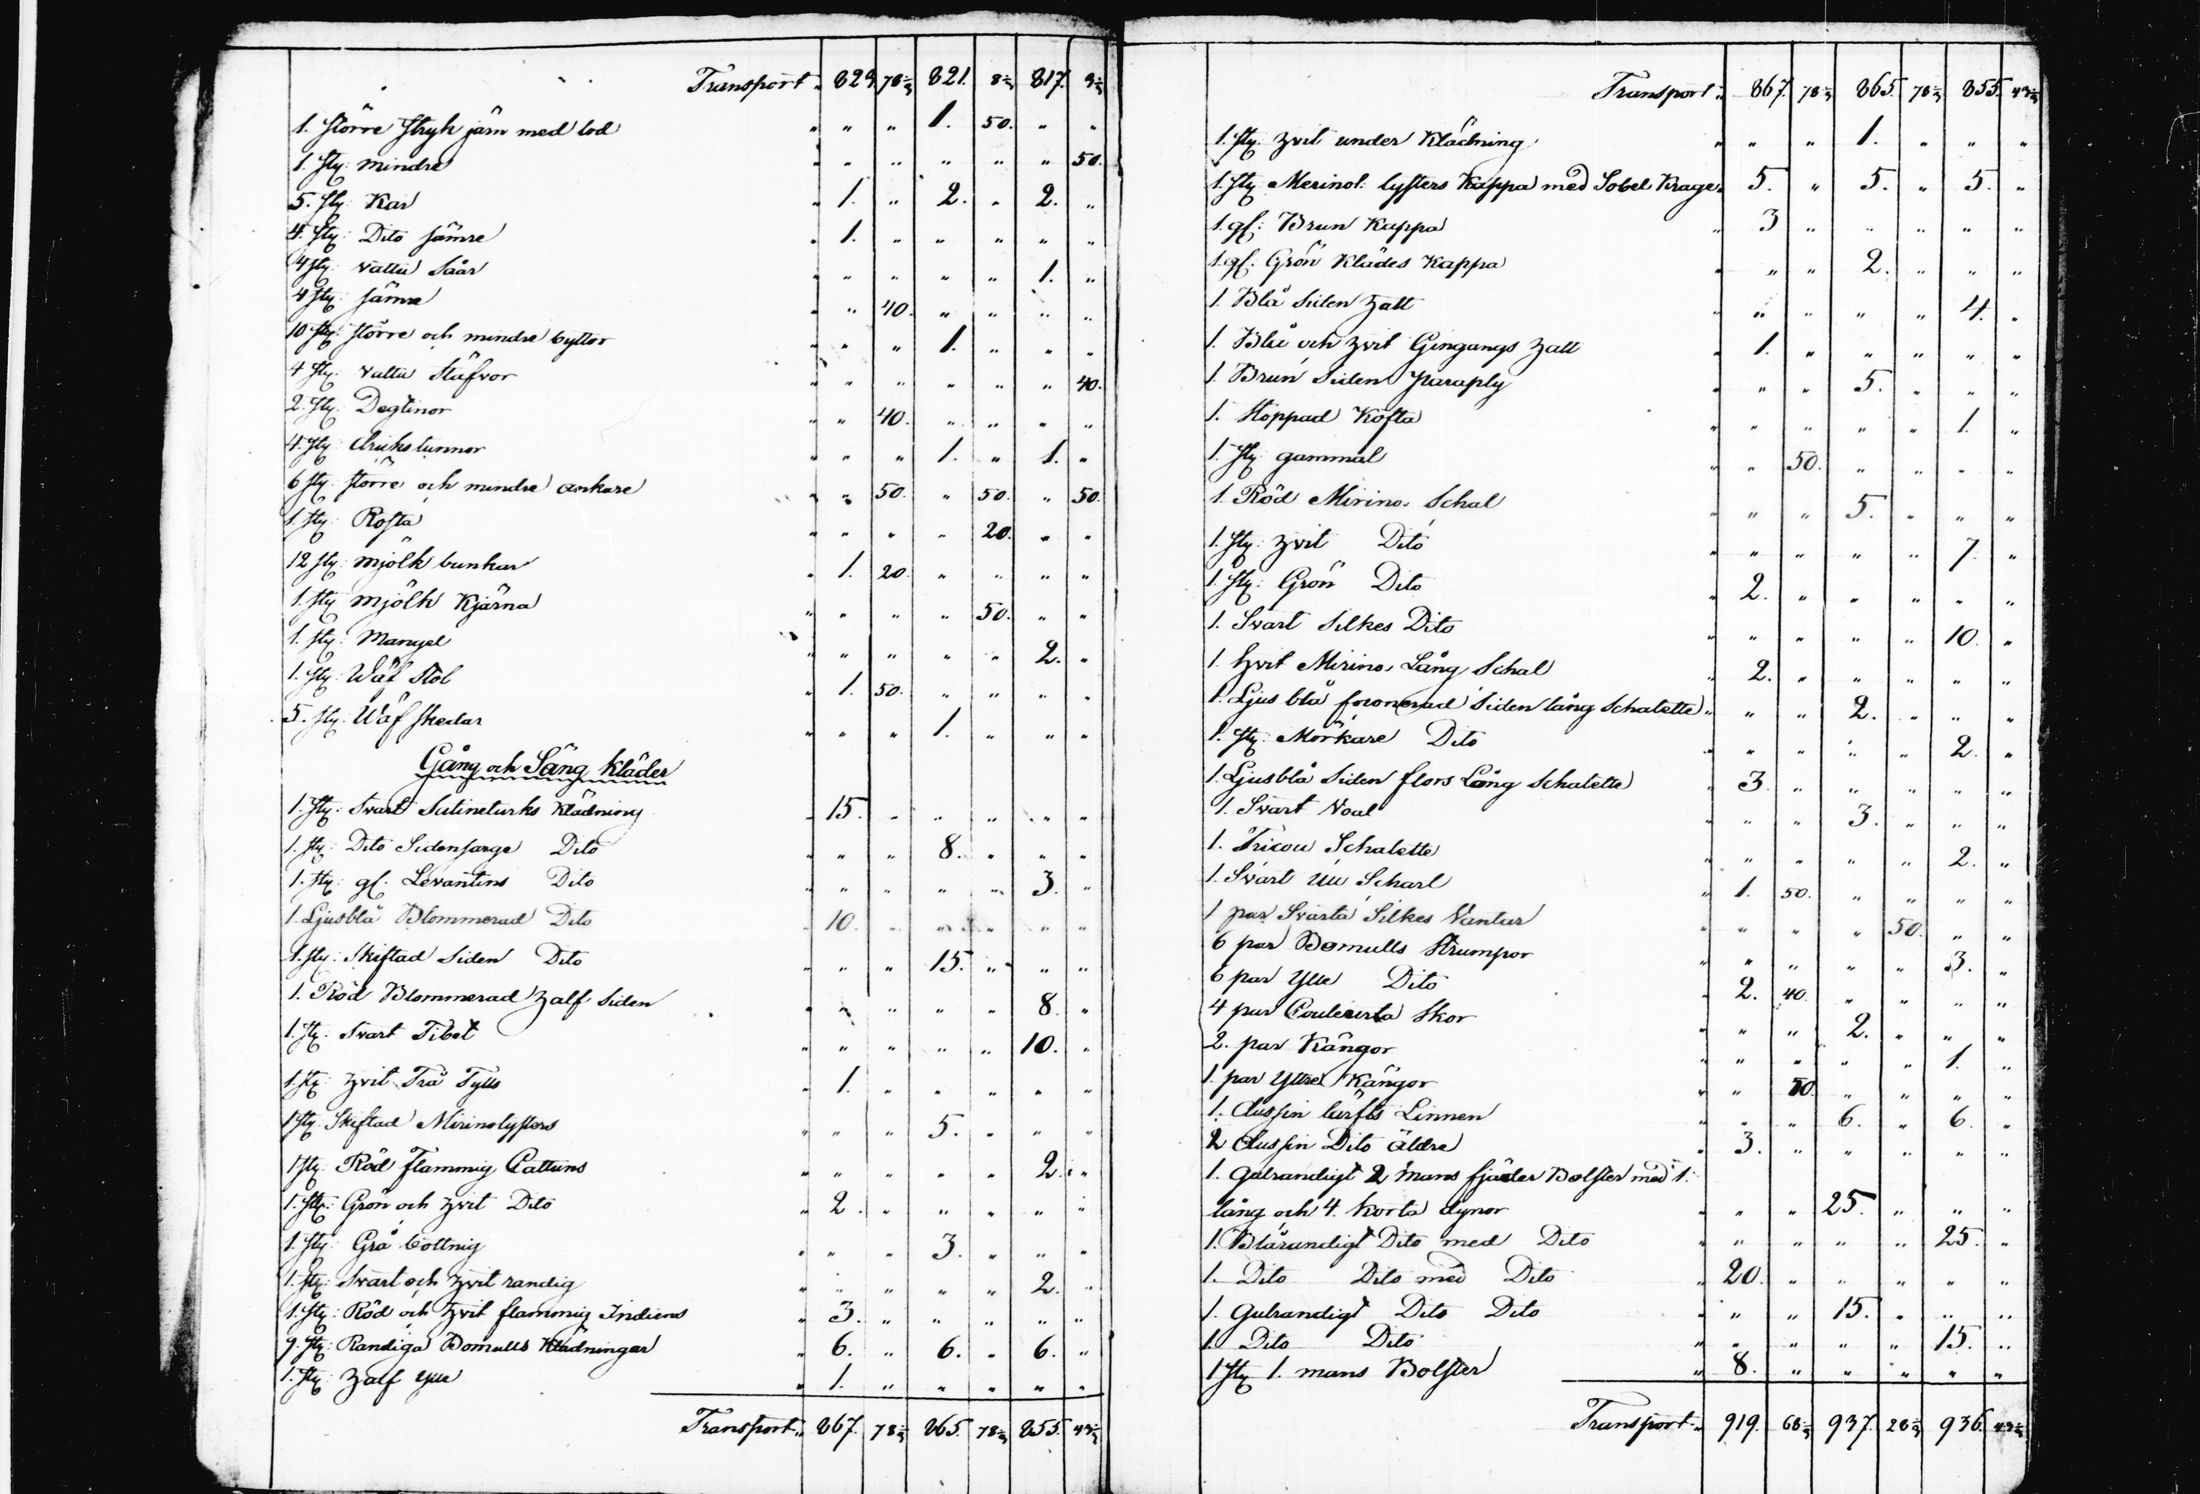 Transport „ 823. 78 821. 8 817. 9
1. större Stryk järn med lod „ „ „ 1. 50. „ „
1. sty: mindre „ „ „ „ „ „ 50.
5. sty: Kar „ 1. „ 2. „ 2. „
4. sty: Dito sämre „ 1. „ „ „ „ „
4 sty: vattu Såar „ „ „ „ „ 1. „
4 sty: sämre „ „ 40. „ „ „ „
10 sty: större och mindre byttor „ „ „ 1. „ „ „
4 sty: vattu Stäfvor „ „ „ „ „ „ 40.
2. sty: Degtinor „ „ 40. „ „ „ „
4. sty: dricks tunnor „ „ „ 1. „ 1. „
6 sty: större och mindre ankare „ „ 50. „ 50. „ 50.
1. sty: Rosta „ „ „ „ 20. „ „
12 sty: mjölk bunkar „ 1. 20. „ „ „ „
1. sty: mjölk Kjärna „ „ „ „ 50. „ „
1. sty: Mangel „ „ „ „ „ 2. „
1. sty: Wäf Stol „ 1. 50. „ „ „ „
5. sty: Wäf skedar „ „ „ 1. „ „ „
Gång och Säng kläder
1. sty: Svart Satineturks Klädning „ 15. „ „ „ „ „
1. sty: Dito Sidensarge Dito „ „ „ 8. „ „ „
1. sty: gl. Levantins Dito „ „ „ „ „ 3. „
1. Ljusblå Blommerad Dito „ 10. „ „ „ „ „
1. sty: Skiftad Siden Dito „ „ „ 15. „ „ „
1. Röd Blommerad half Siden „ „ „ „ „ 8. „
1. sty: Svart Tibet „ „ „ „ „ 10. „
1 sty: hvit Trå Tylls „ 1. „ „ „ „ „
1 sty: Skiftad Mirinolysters „ „ „ 5. „ „ „
1 sty: Röd flammig Cattuns „ „ „ „ „ 2. „
1. sty: Grön och hvit Dito „ 2. „ „ „ „ „
1. sty: Grå bottnig „ „ „ 3. „ „ „
1. sty: Svart och hvit randig „ „ „ „ „ 2. „
1. sty: Röd och hvit flammig Indiens „ 3. „ „ „ „ „
9. sty: Randiga Bomulls Klädningar „ 6. „ 6. „ 6. „
1. sty: half ylle „ 1. „ „ „ „ „
Transport „ 867. 78 865. 78 855. 49
Transport „ 867. 78 865. 78 855. 49
1. sty: hvit under Klädning „ „ „ 1. „ „ „
1. sty: Merinol: lysters Kappa med Sobel Krage „ 5. „ 5. „ 5. „
1. gl: Brun Kappa „ 3 „ „ „ „ „
1. gl: Grön Klädes Kappa „ „ „ 2. „ „ „
1. Blå Siden hatt „ „ „ „ „ 4. „
1. Blå och hvit Gingangs hatt „ 1. „ „ „ „ „
1. Brun Siden Paraply „ „ „ 5. „ „ „
1. Stoppad Kofta „ „ „ „ „ 1. „
1. sty: gammal „ „ 50. „ „ „ „
1. Röd Mirino. Schal „ „ „ 5. „ „ „
1. sty: hvit Dito „ „ „ „ „ 7. „
1. sty: Grön Dito „ 2. „ „ „ „ „
1. Svart Silkes Dito „ „ „ „ „ 10. „
1. hvit Mirino. Lång Schal „ 2. „ „ „ „ „
1. Ljus blå fasonerad Siden lång Schalette „ „ „ 2. „ „ „
1. sty: Mörkare Dito „ „ „ „ „ 2. „
1. Ljusblå Siden flors Lång Schalette „ 3. „ „ „ „ „
1. Svart Voal „ „ „ 3. „ „ „
1. Tricou Schalette „ „ „ „ „ 2. „
1. Svart Scharl „ 1. 50. „ „ „ „
1 par Svarta Silkes Vantar „ „ „ „ 50. „ „
6 par Bomulls Strumpor „ „ „ „ „ 3. „
6 par Ylle Dito „ 2. 40. „ „ „ „
4 par Couleurta Skor „ „ „ 2. „ „ „
2. par Kängor „ „ „ „ „ 1. „
1. par Yttre Kängor „ „ 50. „ „ „ „
1. dussin lärfts Linnen „ „ „ 6. „ 6. „
2 dussin Dito äldre „ 3. „ „ „ „ „
1. Gulrandigt 2 mans fjäder Bolster med 1.
lång och 4. korta dynor „ „ „ 25. „ „ „
1. Blårandigt Dito med Dito „ „ „ „ „ 25. „
1. Dito Dito med Dito „ 20. „ „ „ „ „
1. Gulrandigt Dito Dito „ „ „ 15. „ „ „
1. Dito Dito „ „ „ „ „ 15. „
1 sty 1. mans Bolster „ 8. „ „ „ „ „
Transport „ 919. 68 937. 28 936. 49